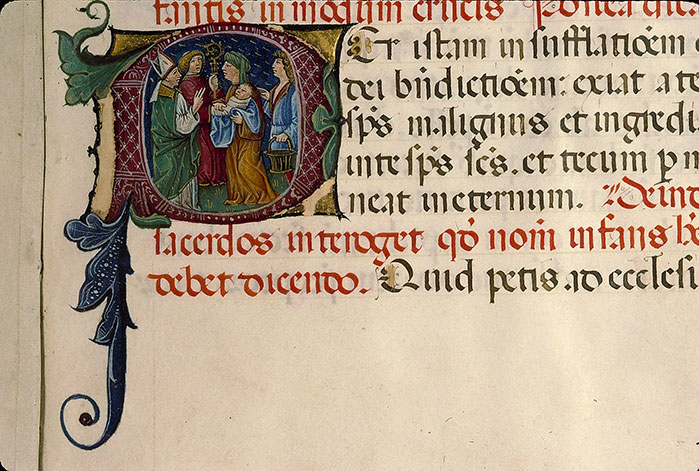 fantis in modum crucis Postea dica
Per istam insufflatioem
dei bndictioem: exiat a te
sps malignus et ingredi
in te sps scs. et tecum p m
neat in eternum. Deind
sacerdos interoget qd nom infans ha
debet dicendo. Quid petis ad ecclesi